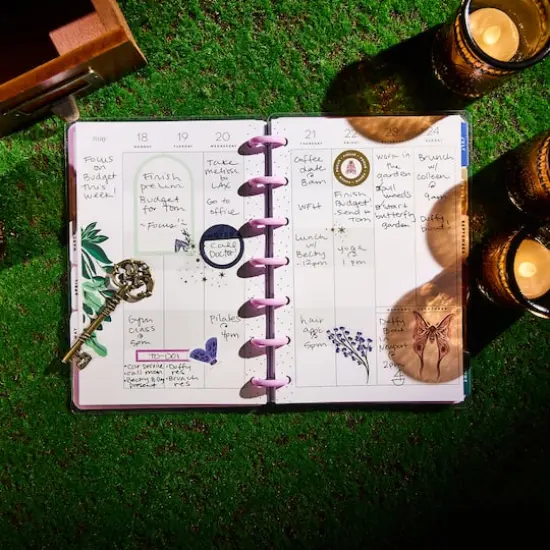 may
18
MONDAY
19
TUESDAY
20
WEDNESDAY
Focus
on
Budget
this
week!
Finish
prelim
Budget
for Tom
- Focus
Take
melissa
to
LAX
Go to
office
Call
Doctor!
Gym
Class
@
5pm
Pilates
@
4pm
TO-DO!
• Car service
• Call mom
• Becky B-Day
present
• Duffy
res
• Brunch
res
21
THURSDAY
22
23
24
SUNDAY
Coffee
date
@
8am
WFH
Lunch
w/
Becky
- 12pm
hair
appt
@
5pm
Finish
Budget!
Send to
Tom
yoga
@
1pm
Work in
the
garden
pull weeds
& start
butterfly
garden
Brunch
w/
Colleen
@
9am
Duffy
Duffy
@
2pm